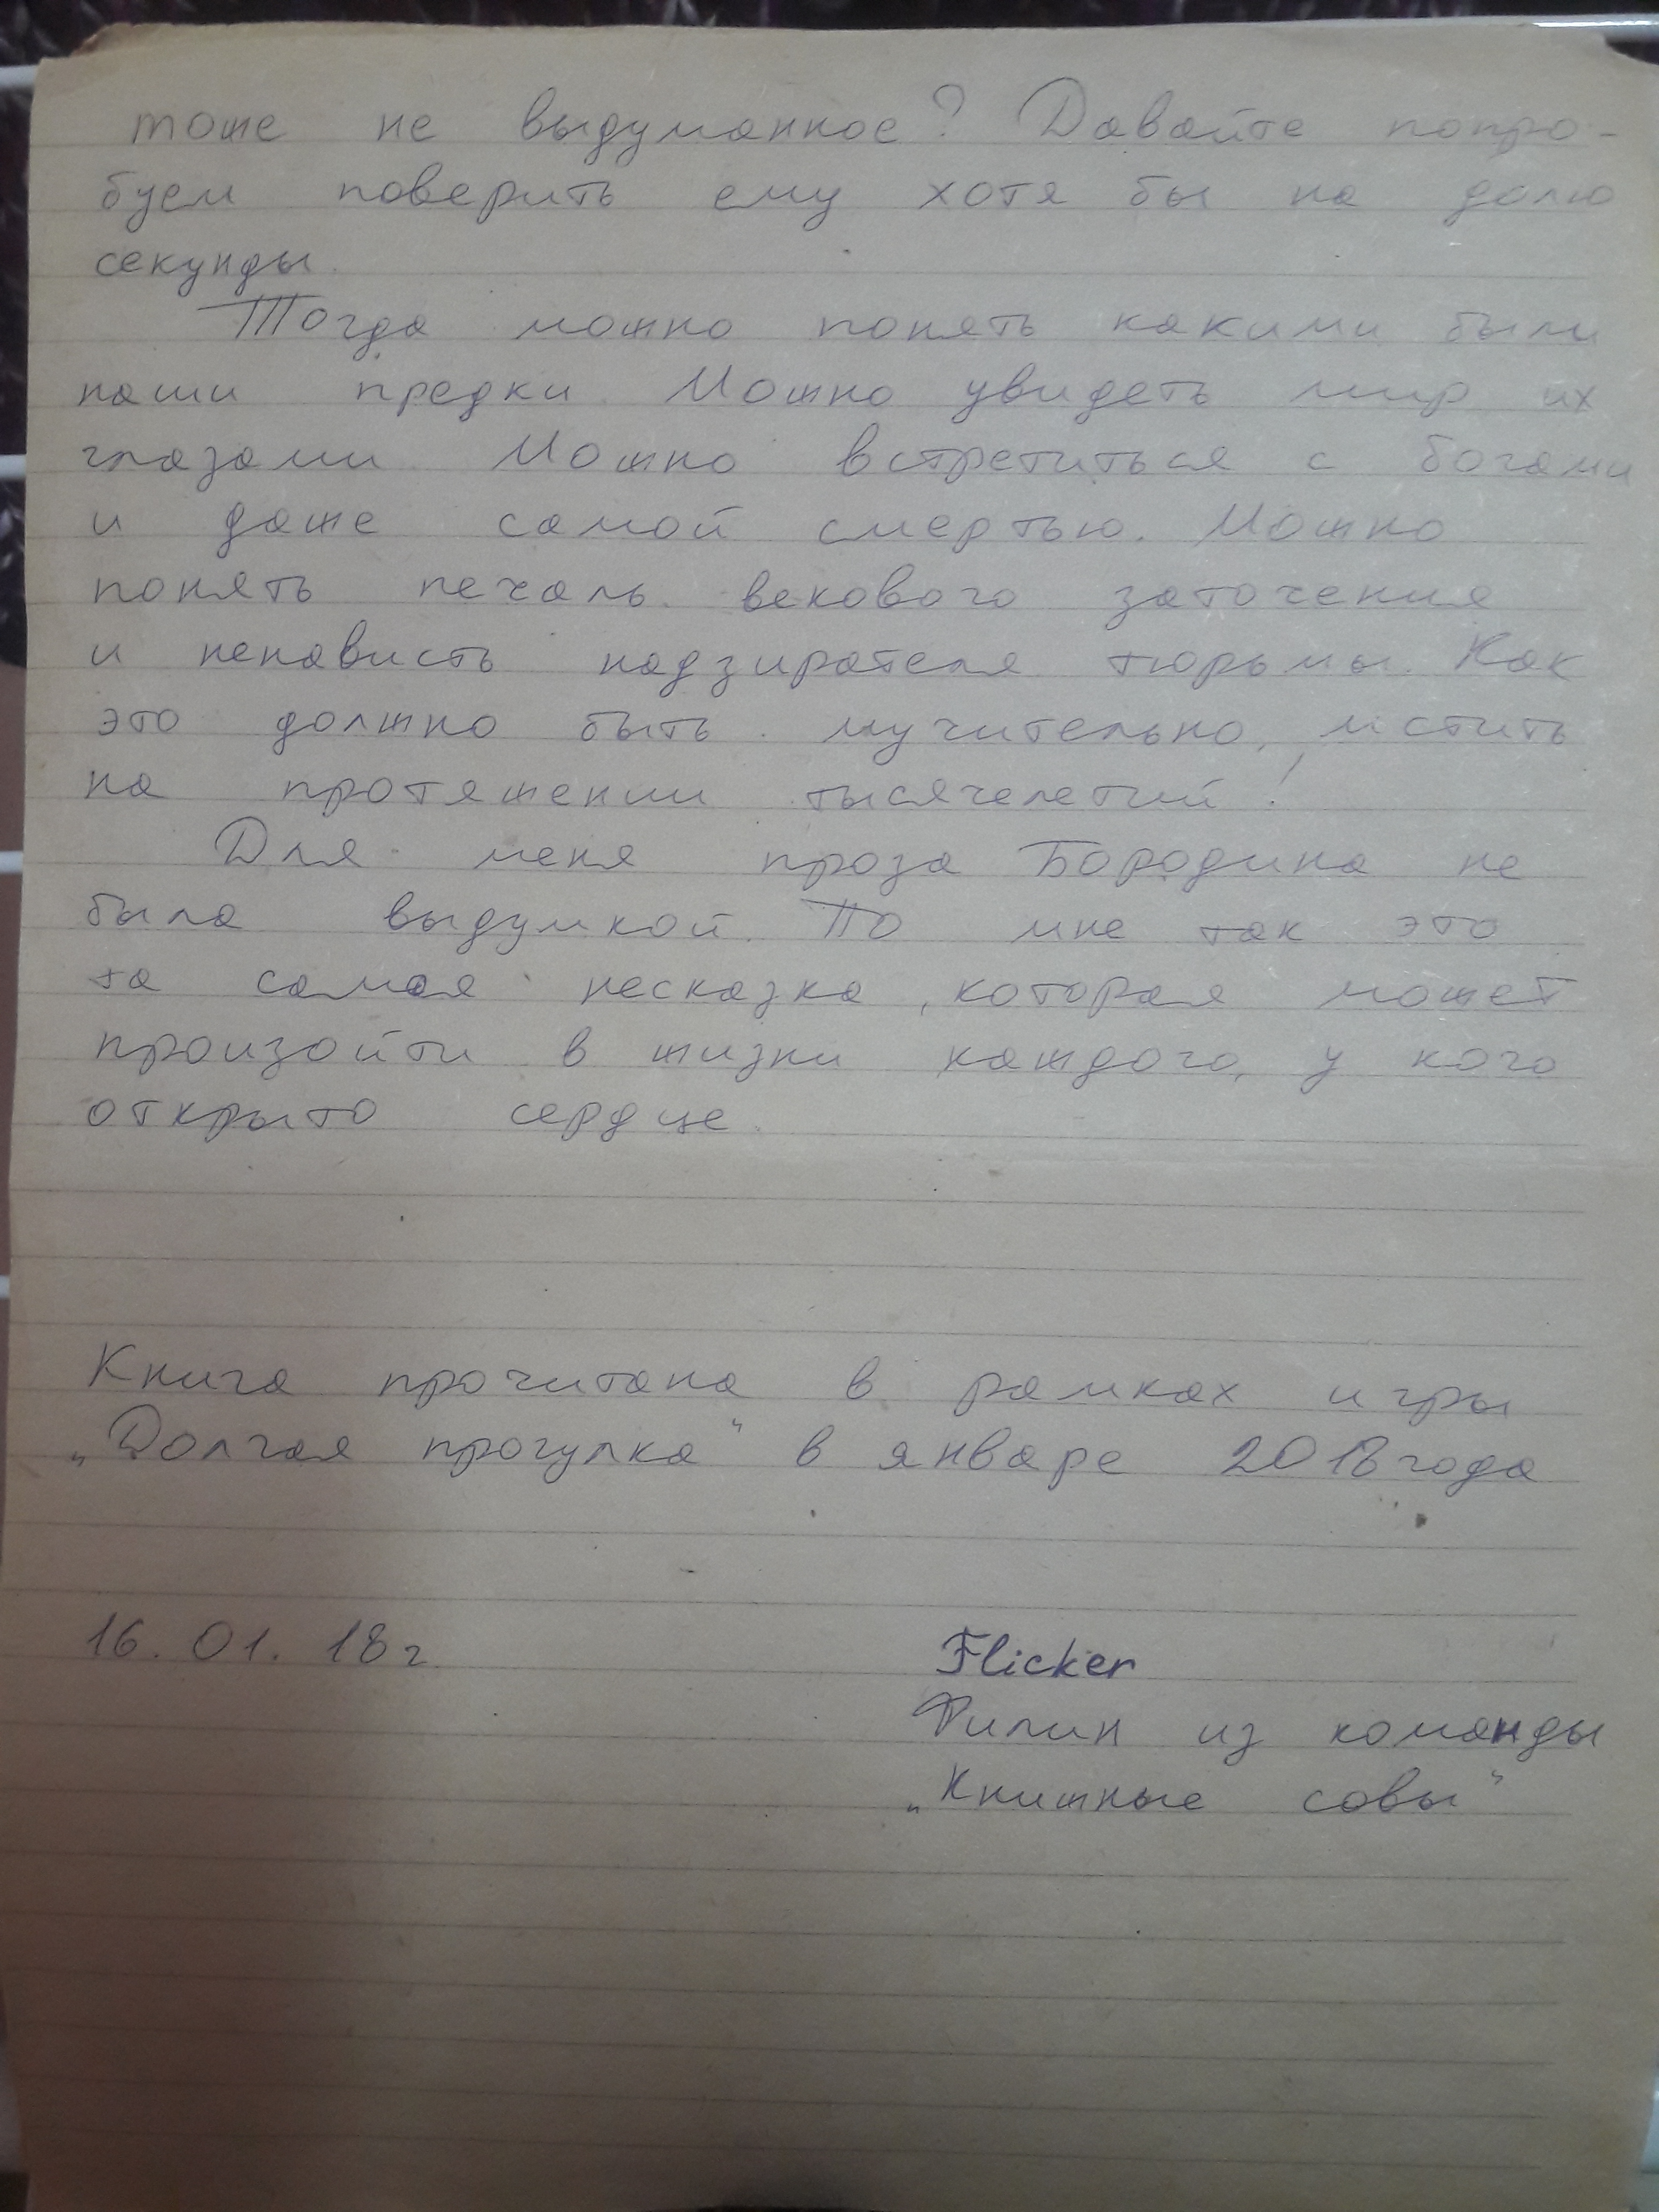 тоже не выдуманное? Давайте попро-
буем поверить ему хотя бы на долю
секунды.
Тогда можно понять какими были
наши предки. Можно увидеть мир их
глазами. Можно встретиться с богами
и даже самой смертью. Можно
понять печаль векового заточения
и ненависть надзирателя тюрьмы. Как
это должно быть мучительно, мстить
на протяжении тысячелетий!
Для меня проза Бородина не
была выдумкой. По мне так это
та самая несказка, которая может
произойти в жизни каждого, у кого
открыто сердце.
Книга прочитана в рамках игры
„Долгая прогулка" в январе 2018 года
16. 01. 18 г.
Flicker
Филин из команды
„Книжные совы"